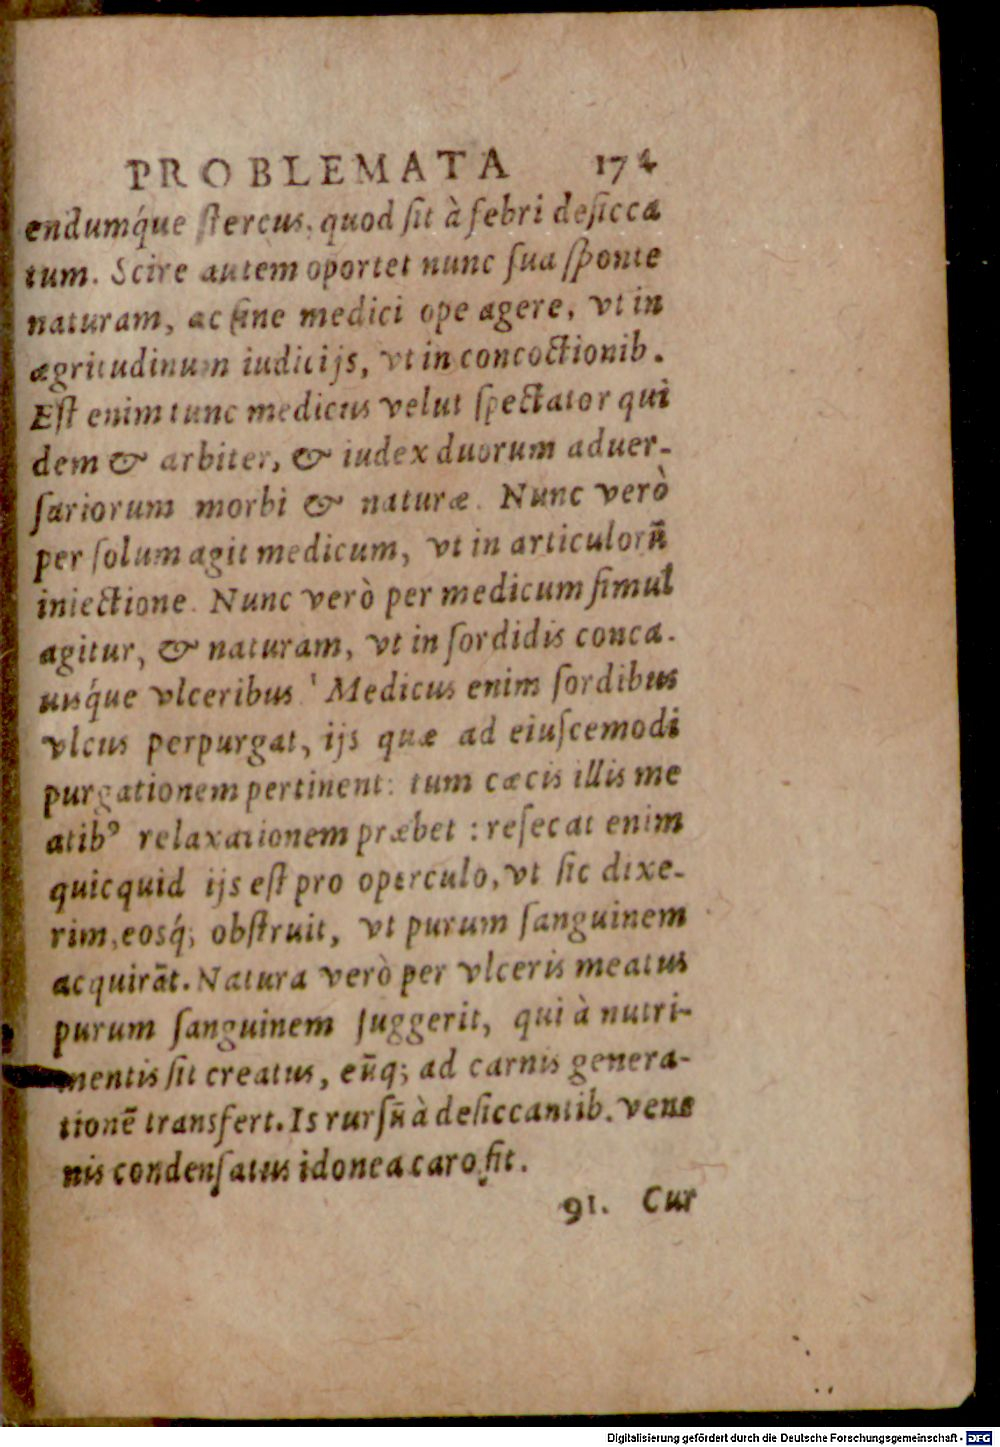 PROBLEMATA 174
endumq́ue ſtercus, quod ſit à febri deſicca
tum. Scire autem oportet nunc ſua ſponte
naturam, ac ſine medici ope agere, vt in
ægritudinum iudicijs, vt in concoctionib.
Eſt enim tunc medicus velut ſpectator qui
dem & arbiter, & iudex duorum aduer-
ſariorum morbi & naturæ. Nunc verò
per ſolum agit medicum, vt in articulorũ
iniectione. Nunc verò per medicum ſimul
agitur, & naturam, vt in ſordidis conca-
uisq́ue vlceribus. Medicus enim ſordibus
vlcus perpurgat, ijs quæ ad eiuſcemodi
purgationem pertinent: tum cæcis illis me
atibꝰ relaxationem præbet : reſecat enim
quicquid ijs eſt pro operculo, vt ſic dixe-
rim, eosq́; obſtruit, vt purum ſanguinem
acquirãt. Natura verò per vlceris meatus
purum ſanguinem ſuggerit, qui à nutri-
mentis ſit creatus, eũq; ad carnis genera-
tionẽ transfert. Is rurſũ à deſiccantib. vene
nis condenſatus idonea caro fit.
91. Cur
Digitalisierung gefördert durch die Deutsche Forschungsgemeinschaft - DFG